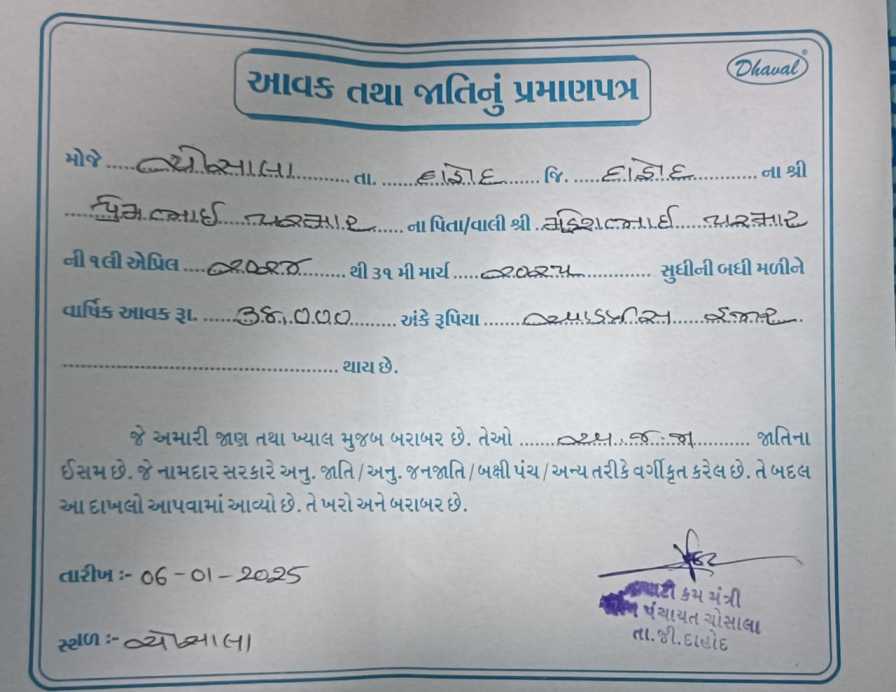 Dhaval
આવક તથા જાતિનું પ્રમાણપત્ર
મોજે ..... ચોસાલા ........... તા. ...... દાહોદ ....... જિ. ..... દાહોદ ............. ના શ્રી
..... પ્રેમભાઈ પરમાર ..... ના પિતા/વાલી શ્રી . મહેશભાઈ પરમાર
ની ૧લી એપ્રિલ .... ૨૦૨૪ ........ થી ૩૧ મી માર્ચ ..... ૨૦૨૫ ............. સુધીની બધી મળીને
વાર્ષિક આવક રૂા. ...... ૩૪,૦૦૦ ......... અંકે રૂપિયા ....... હજાર .
............................................. થાય છે.
જે અમારી જાણ તથા ખ્યાલ મુજબ બરાબર છે. તેઓ ....... અ.જ.જા ........... જાતિના
ઈસમ છે. જે નામદાર સરકારે અનુ. જાતિ / અનુ. જનજાતિ / બક્ષી પંચ / અન્ય તરીકે વર્ગીકૃત કરેલ છે. તે બદલ
આ દાખલો આપવામાં આવ્યો છે. તે ખરો અને બરાબર છે.
તારીખ :- 06-01-2025
તલાટી કમ મંત્રી
ગ્રામ પંચાયત ચોસાલા
તા.જી.દાહોદ
સ્થળ :- ચોસાલા